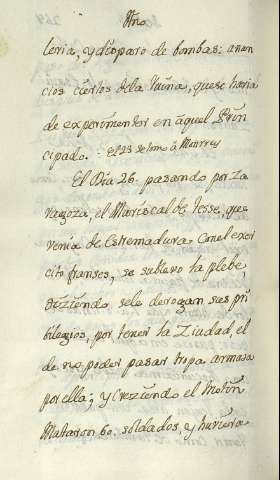 Año
leria, y disparo de bombas: anun
cios ciertos dela Ruina, que se havia
de experimentar en aquel Prin
cipado. El 23 se tomo à Monrroy
El Dia 26. pasando por Za
ragoza, el Mariscal de Tesse, que
venia de Estremadura con el exer
cito franses, se sublevo la plebe,
diziendo sele derogan sus pri
bilegios, por tener la Ziudad, el
de no poder pasar tropa armada
por ella; y creziendo el motin
Mataron 60. soldados, y huviera